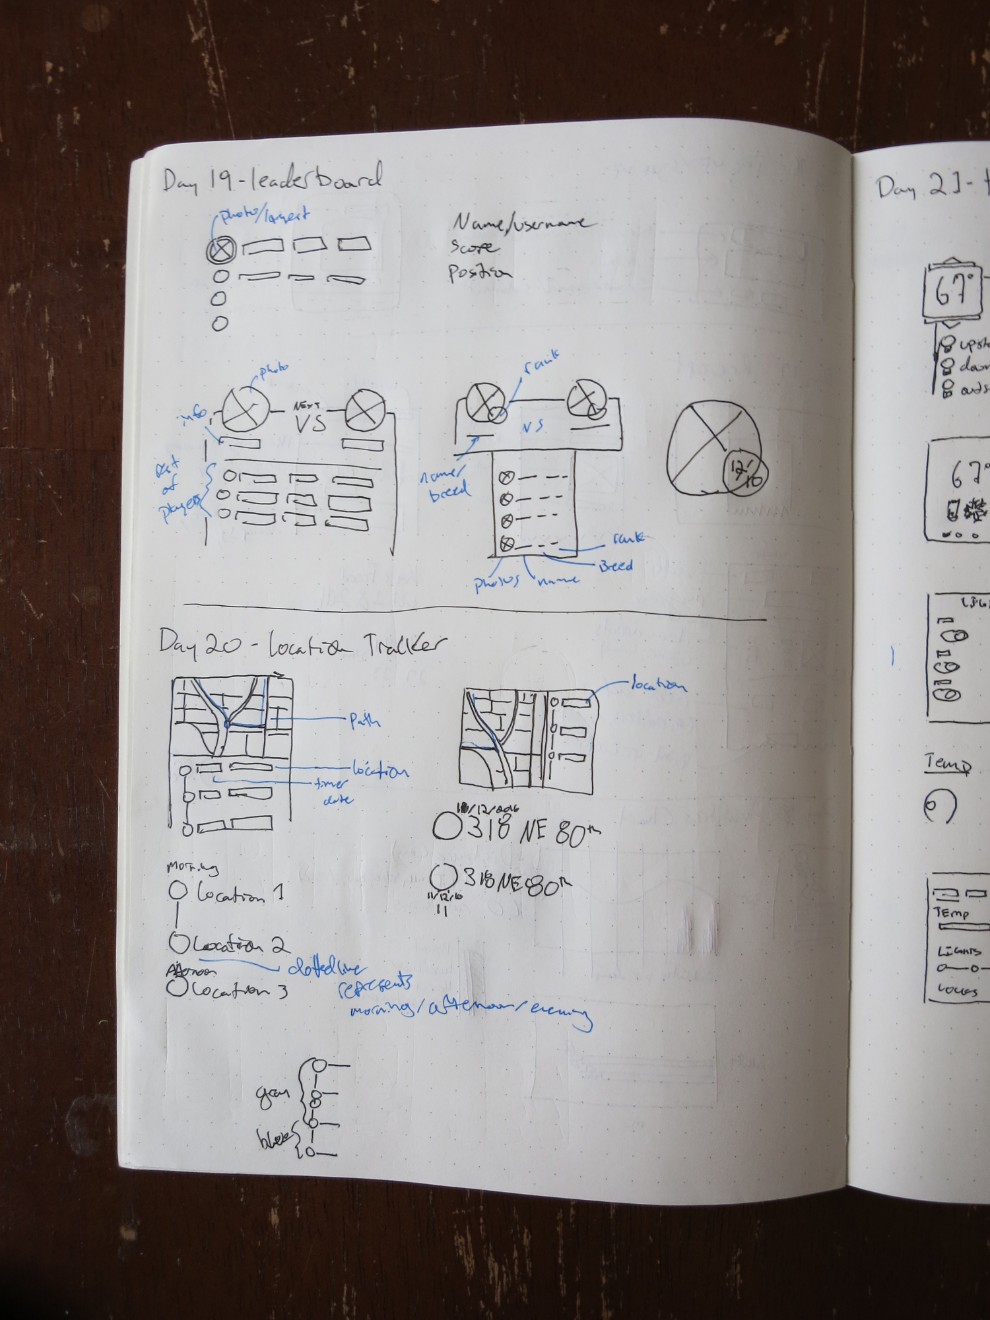 Day 19 - leaderboard
photo/largest
Name/username
Score
Position
photo
info
NEXT
VS
rest
of
players
rank
VS
name/
breed
rank
Breed
photos
name
12/
16
Day 20 - Location Tracker
Path
location
time
date
location
10/12/2016
318 NE 80th
318 NE 80th
11/12/16
11
Morning
Location 1
Location 2
Afternoon
Location 3
dotted line
represents
morning/afternoon/evening
Day 21 -
67°
67°
Temp
TEMP
LIGHTS
LOCKS